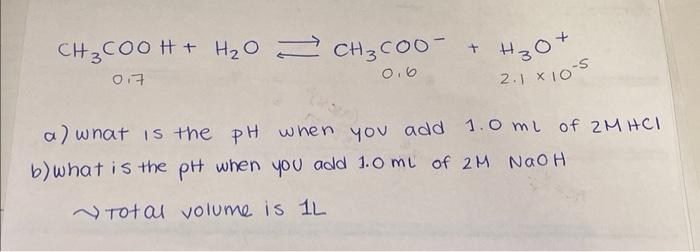 CH₃COOH + H₂O ⇌ CH₃COO⁻ + H₃O⁺
0.7 0.6 2.1 × 10⁻⁵
a) what is the pH when you add 1.0 mL of 2M HCl
b) what is the pH when you add 1.0 mL of 2M NaOH
~> Total volume is 1L